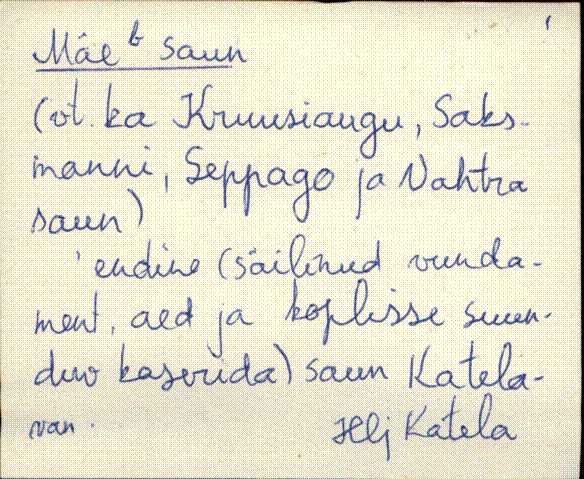 Mäe b saun
(vt. ka Kruusiaugu, Saks-
manni, Seppago ja Vahtra
saun)
'endine (säilinud vunda-
ment, aed ja koplisse suun-
duv kaserida) saun Katela-
van.
Hlj Katela